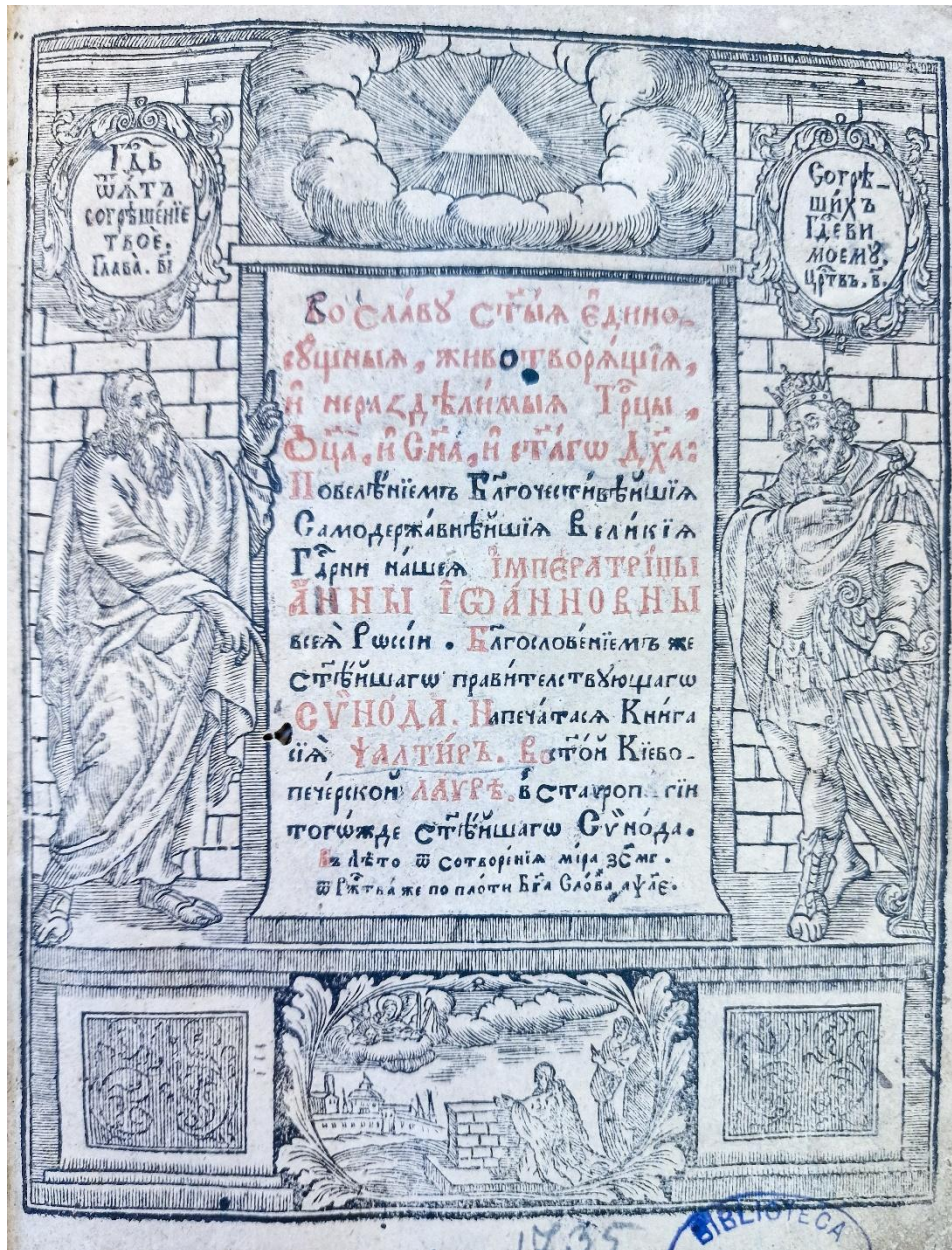 Гд҃ь
ѿѧтъ
согрѣше́нїе
твоѐ.
Глава̀. в҃і
Согрѣ-
ши́хъ
Гд҃еви
моемꙋ̀.
цр҃твъ. в҃.
Во сла́вꙋ ст҃ы́ѧ є҆дино-
сꙋ́щныѧ, животворѧ́щїѧ,
и҆ нераздѣли́мыѧ Тр҃цы,
Ѻ҆ц҃а̀, и҆ Сн҃а, и҆ ст҃а́гѡ Дх҃а:
Повелѣ́нїемъ Бл҃гочести́вѣйшїѧ
Самодержа́внѣйшїѧ Вели́кїѧ
Гд҃рни на́шеѧ І҆мперат́рїцы
А҆́нны І҆ѡа́нновны
всеѧ̀ Рѡссі́и. Бл҃гослове́нїемъ же
ст҃ѣ́йшагѡ прави́телствꙋющагѡ
Сѵно́да. Напеча́тасѧ Кни́га
сїѧ̀ Ѱалти́ръ. Во ст҃о́й Кїево-
пече́рской Ла́ѵрѣ. в̾ Ставропигі́и
тогѡ́жде ст҃ѣ́йшагѡ Сѵно́да.
Въ лѣ́то ѿ сотворе́нїѧ мі́ра ҂зс҃мг.
ѿ Рж҃тва́ же по пло́ти Бг҃а Сло́ва, ҂аѱл҃є.
1735
BIBLIOTECA